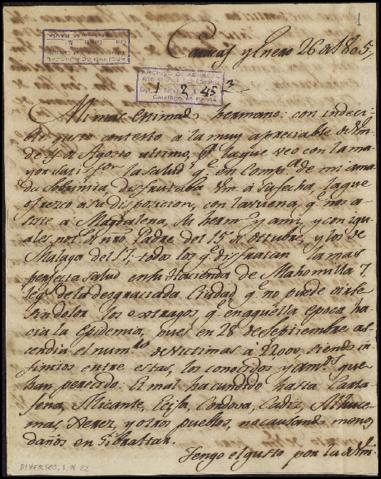 1
Caracas y Enero 26 de 1805,
1 2, 45
Mi mas estimado hermano: con indeci-
ble gusto contexto a la muy apreciable de Vm
de 9 de Agosto ultimo, pr la que veo con la ma-
yor satisfon la salud qe en Compa de mi ama-
da Sobrinita disfrutaba Vm à su fecha, la que
ofresco a su disposicion, con la mia, qe nos a-
siste a Magdalena, su herma y a mi, y con igu-
ales not de nro Padre del 15 de Octubre, y los de
Malaga del 17, todos los qe disfrutan la mas
perfecta salud en la Hacienda de Mahomilla 7
leguas de la desgraciada Ciudad qe no puede oirse
sin dolor los extragos qe en aquella epoca ha-
cia la Epidemia, pues en 28 de Septiembre as-
cendia el numo de victimas à 22000, siendo in-
finitos entre estas, los conocidos y amigos que
han perecido. El mal ha cundido hasta Carta-
jena, Alicante, Ecija, Cordova, Cadiz, Alhuce-
mas, Xerez, y otros pueblos, no causando menos
daños en Gibraltar.
Tengo el gusto por la de Vm
DIVERSOS, 1, N 22